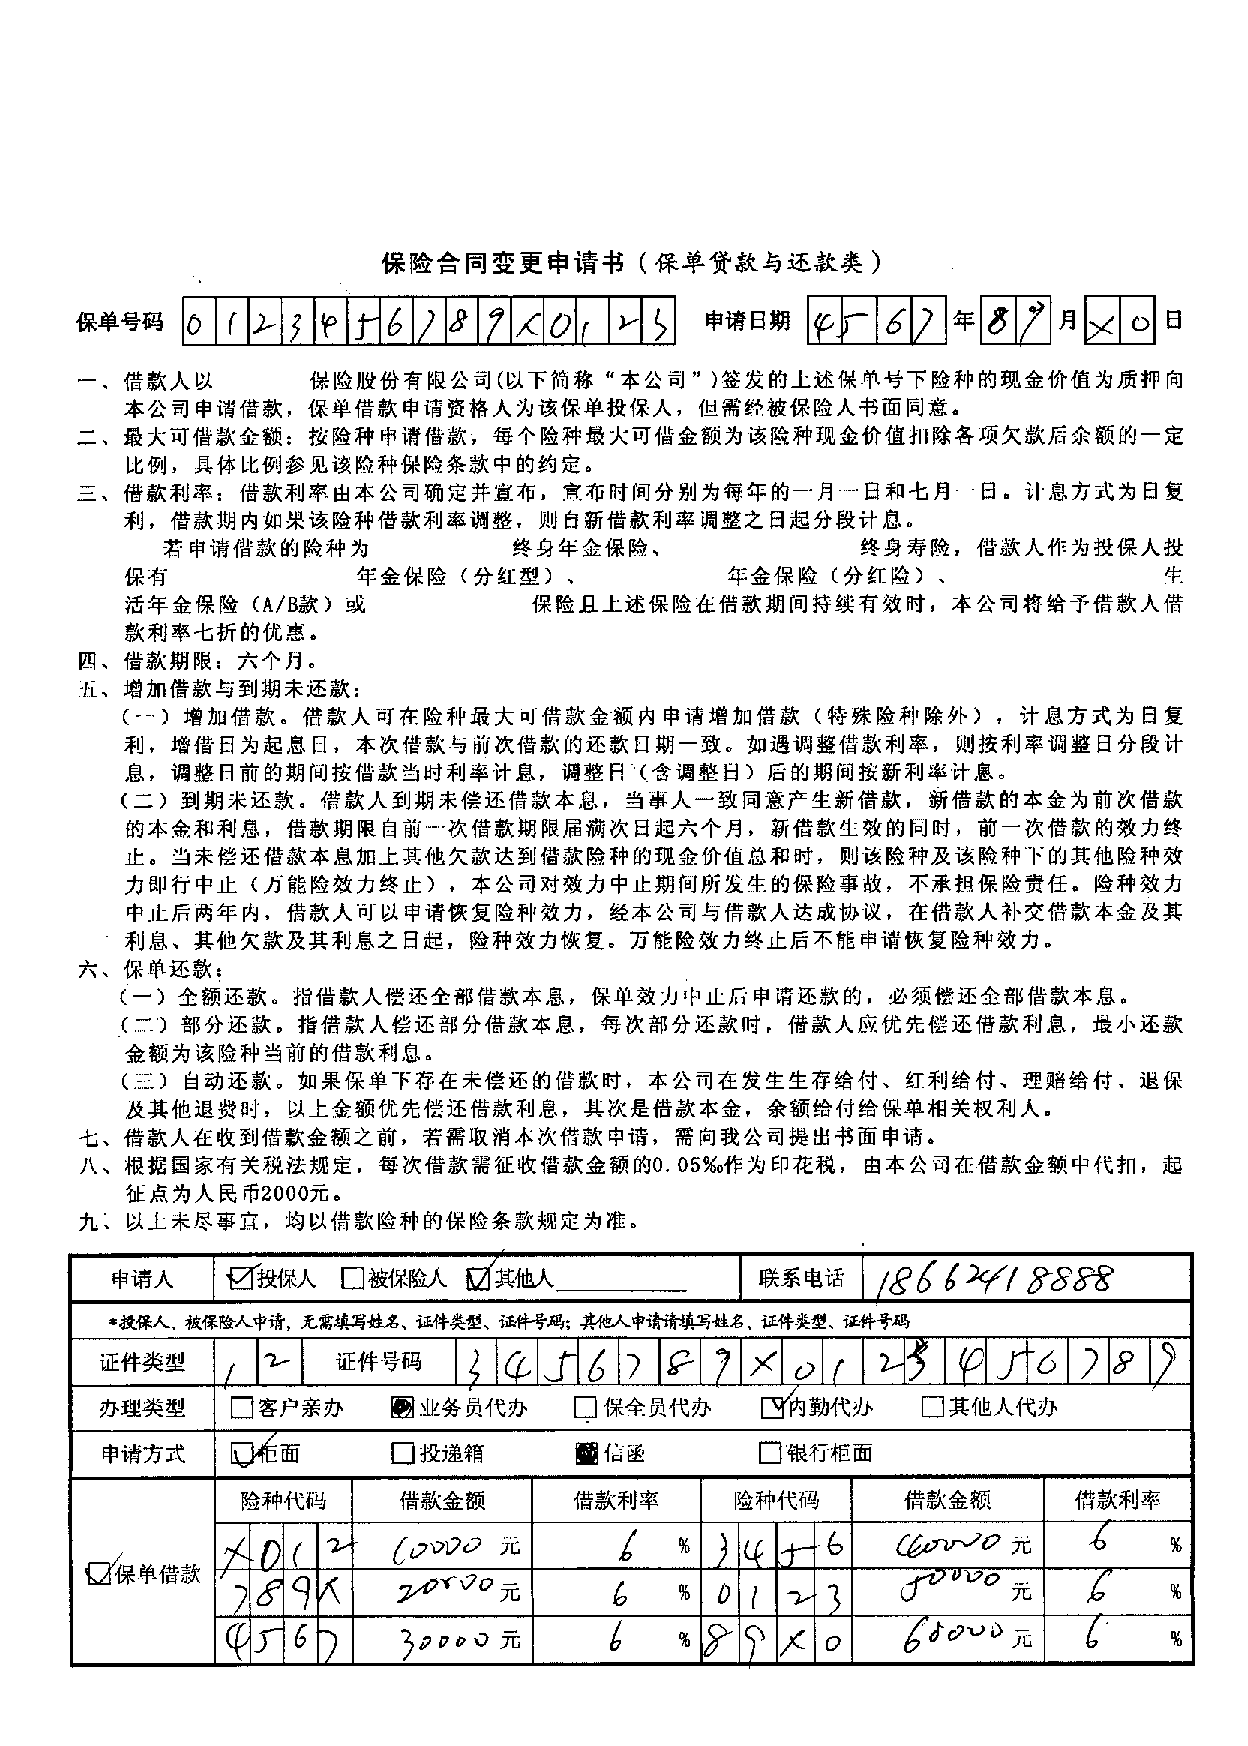 保险合同变更申请书（保单贷款与还款类）
保单号码 0 1 2 3 4 5 6 7 8 9 X 0 1 2 3 申请日期 4 5 6 7 年 8 9 月 X 0 日
一、借款人以 保险股份有限公司(以下简称“本公司”)签发的上述保单号下险种的现金价值为质押向
本公司申请借款，保单借款申请资格人为该保单投保人，但需经被保险人书面同意。
二、最大可借款金额：按险种申请借款，每个险种最大可借金额为该险种现金价值扣除各项欠款后余额的一定
比例，具体比例参见该险种保险条款中的约定。
三、借款利率：借款利率由本公司确定并宣布，宣布时间分别为每年的一月一日和七月一日。计息方式为日复
利，借款期内如果该险种借款利率调整，则自新借款利率调整之日起分段计息。
若申请借款的险种为 终身年金保险、 终身寿险，借款人作为投保人投
保有 年金保险（分红型）、 年金保险（分红险）、 生
活年金保险（A/B款）或 保险且上述保险在借款期间持续有效时，本公司将给予借款人借
款利率七折的优惠。
四、借款期限：六个月。
五、增加借款与到期未还款：
（一）增加借款。借款人可在险种最大可借款金额内申请增加借款（特殊险种除外），计息方式为日复
利，增借日为起息日，本次借款与前次借款的还款日期一致。如遇调整借款利率，则按利率调整日分段计
息，调整日前的期间按借款当时利率计息，调整日（含调整日）后的期间按新利率计息。
（二）到期未还款。借款人到期未偿还借款本息，当事人一致同意产生新借款，新借款的本金为前次借款
的本金和利息，借款期限自前一次借款期限届满次日起六个月，新借款生效的同时，前一次借款的效力终
止。当未偿还借款本息加上其他欠款达到借款险种的现金价值总和时，则该险种及该险种下的其他险种效
力即行中止（万能险效力终止），本公司对效力中止期间所发生的保险事故，不承担保险责任。险种效力
中止后两年内，借款人可以申请恢复险种效力，经本公司与借款人达成协议，在借款人补交借款本金及其
利息、其他欠款及其利息之日起，险种效力恢复。万能险效力终止后不能申请恢复险种效力。
六、保单还款：
（一）全额还款。指借款人偿还全部借款本息，保单效力中止后申请还款的，必须偿还全部借款本息。
（二）部分还款。指借款人偿还部分借款本息，每次部分还款时，借款人应优先偿还借款利息，最小还款
金额为该险种当前的借款利息。
（三）自动还款。如果保单下存在未偿还的借款时，本公司在发生生存给付、红利给付、理赔给付、退保
及其他退费时，以上金额优先偿还借款利息，其次是借款本金，余额给付给保单相关权利人。
七、借款人在收到借款金额之前，若需取消本次借款申请，需向我公司提出书面申请。
八、根据国家有关税法规定，每次借款需征收借款金额的0.05‰作为印花税，由本公司在借款金额中代扣，起
征点为人民币2000元。
九、以上未尽事宜，均以借款险种的保险条款规定为准。
申请人 投保人 被保险人 其他人 联系电话 18662418888
*投保人、被保险人申请，无需填写姓名、证件类型、证件号码；其他人申请请填写姓名、证件类型、证件号码
证件类型 1 2 证件号码 3 4 5 6 7 8 9 X 0 1 2 3 4 5 6 7 8 9
办理类型 客户亲办 业务员代办 保全员代办 内勤代办 其他人代办
申请方式 柜面 投递箱 信函 银行柜面
险种代码 借款金额 借款利率 险种代码 借款金额 借款利率
X 0 1 2 10000 元 6 % 3 4 5 6 40000 元 6 %
保单借款
7 8 9 X 20000 元 6 % 0 1 2 3 50000 元 6 %
4 5 6 7 30000 元 6 % 8 9 X 0 60000 元 6 %